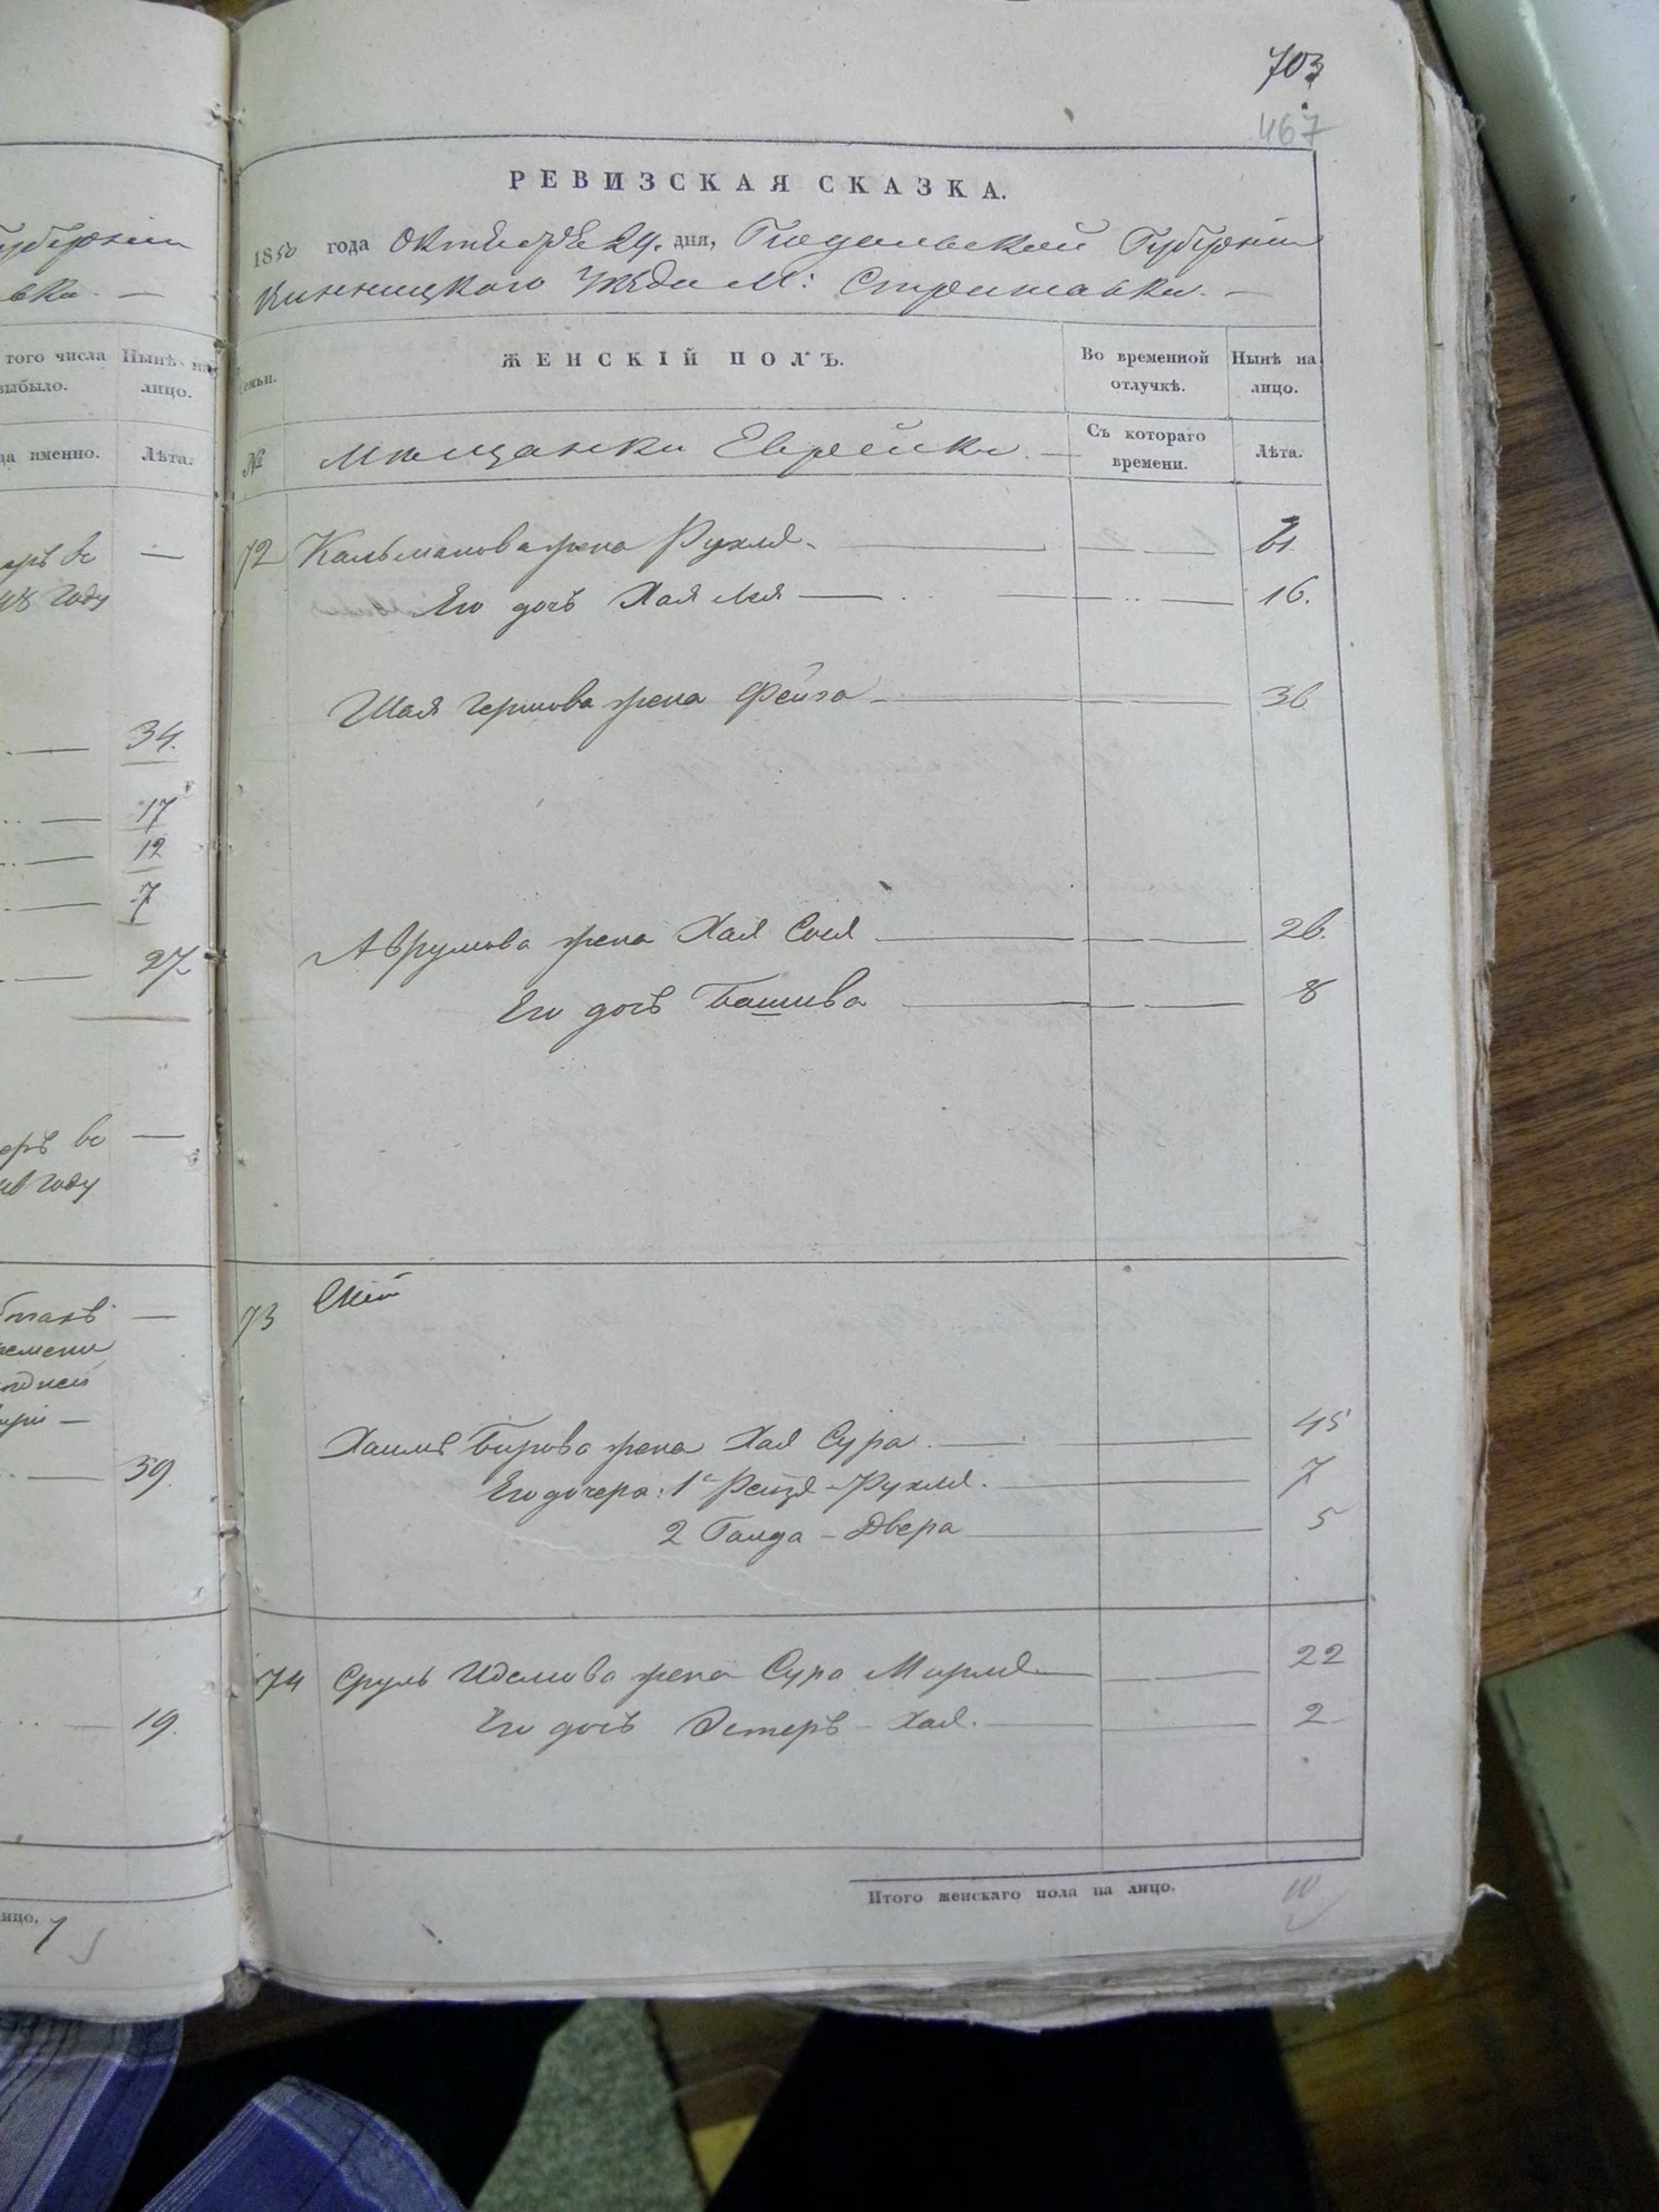 703
467
РЕВИЗСКАЯ СКАЗКА.
1850 года Октября 29. дня, Подольской Губерніи
Винницкого Уѣзда М: Стрижавки. —
Семьи.
ЖЕНСКІЙ ПОЛЪ.
Во временной отлучкѣ.
Нынѣ на лицо.
№
Мѣщанки Еврейки. —
Съ котораго времени.
Лѣта.
72 Кальманова жена Рухля.
Его дочь Хая Лея — 16.
Шая Гершкова жена Фейга — 36
Аврумова жена Хая Сося — 26.
Его дочь Башива — 8
73
Хаимъ Берова жена Хая Сура. — 45
Его дочери: 1я Рейзя-Рухля. — 7
2 Голда - Двера — 5
74 Сруль Иделиова жена Сура Мирля — 22
Его дочь Эстеръ - Хая. — 2
Итого женскаго пола на лицо. 10
губерніи
вка. —
того числа выбыло.
Нынѣ на лицо.
да именно.
Лѣта.
году
— 34.
— 17
— 12
— 7
— 27.
году
— 39.
— 19.
лицо. 7